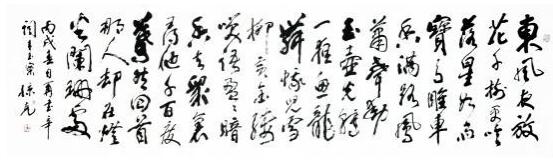 東風夜放
花千樹更吹
落星如雨
寶馬雕車
香滿路鳳
簫聲動
玉壺光轉
一夜魚龍
舞蛾兒雪
柳黃金縷
笑語盈盈暗
香去眾裏
尋他千百度
驀然回首
那人却在燈
火闌珊處
丙戌春日書辛
詞青玉案